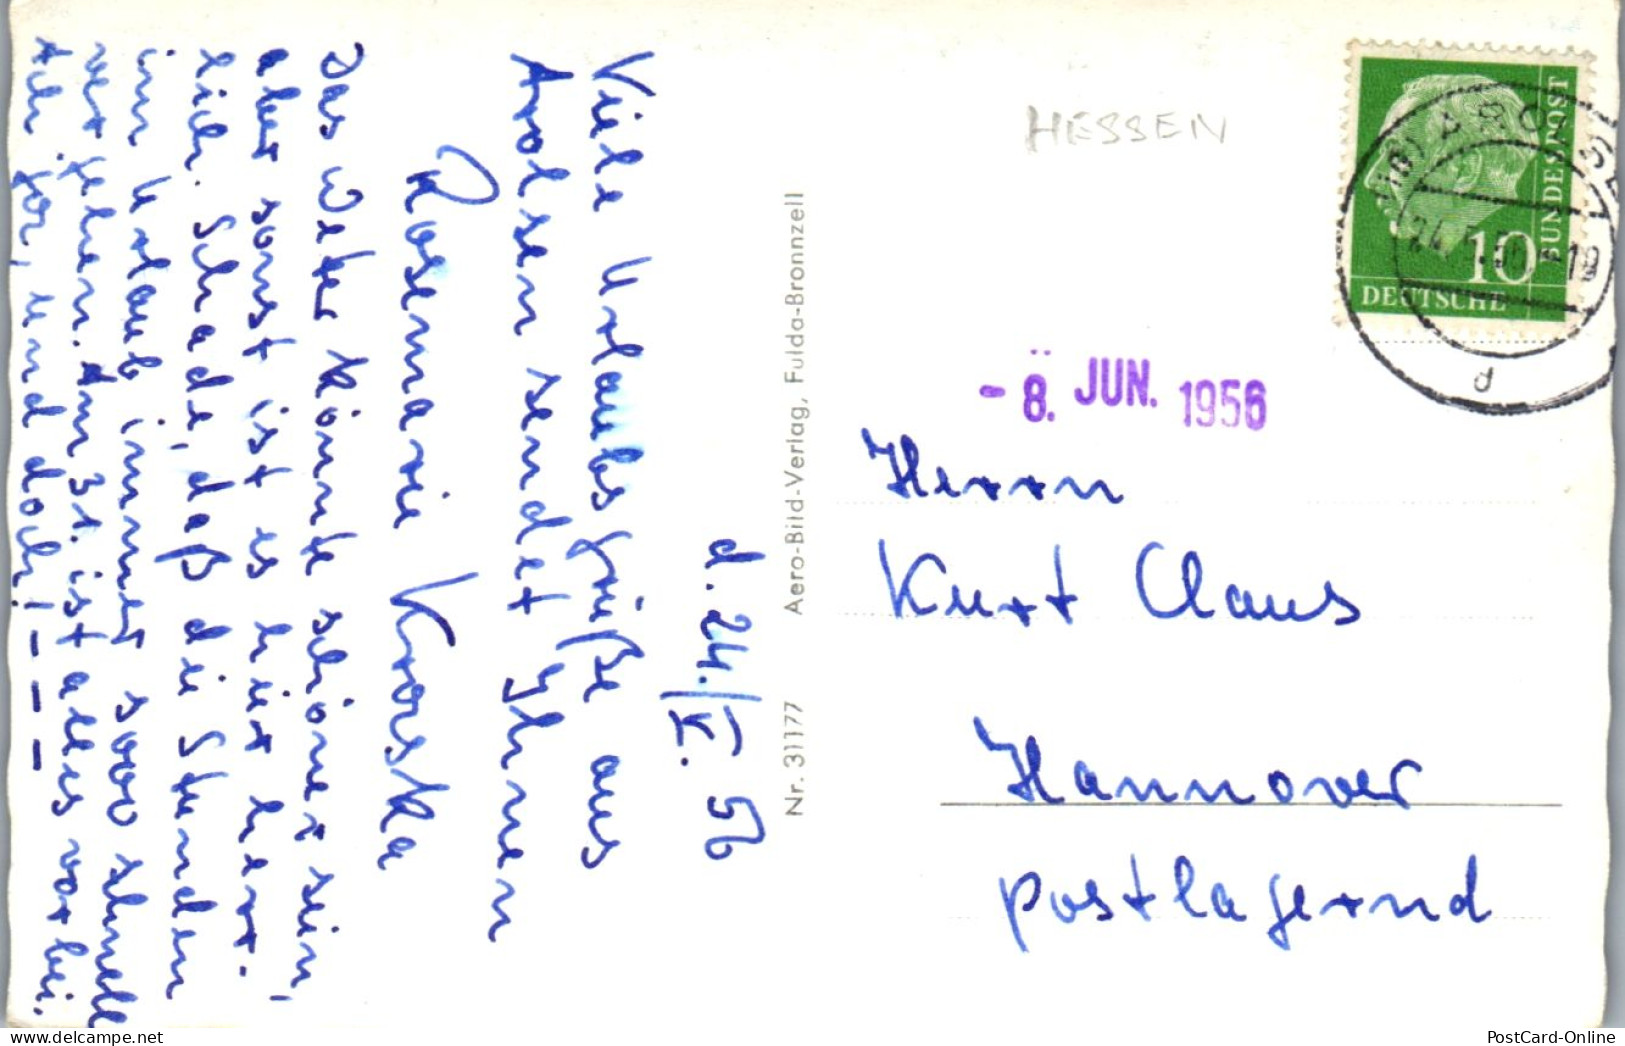 d. 24./V. 56
Viele Urlaubsgrüße aus
Arolsen sendet Ihnen
Rosemarie Korska
Das Wetter könnte schöner sein,
aber sonst ist es hier herr-
lich. Schade, daß die Stunden
im Urlaub immer sooo schnell
vergehen. Am 31. ist alles vorbei.
und doch! - - -
Nr. 31177 Aero-Bild-Verlag, Fulda-Bronnzell
HESSEN
BUNDESPOST
10
DEUTSCHE
d
- 8. JUN. 1956
Herrn
Kurt Claus
Hannover
postlagernd
PostCard-Online
delcampe.net